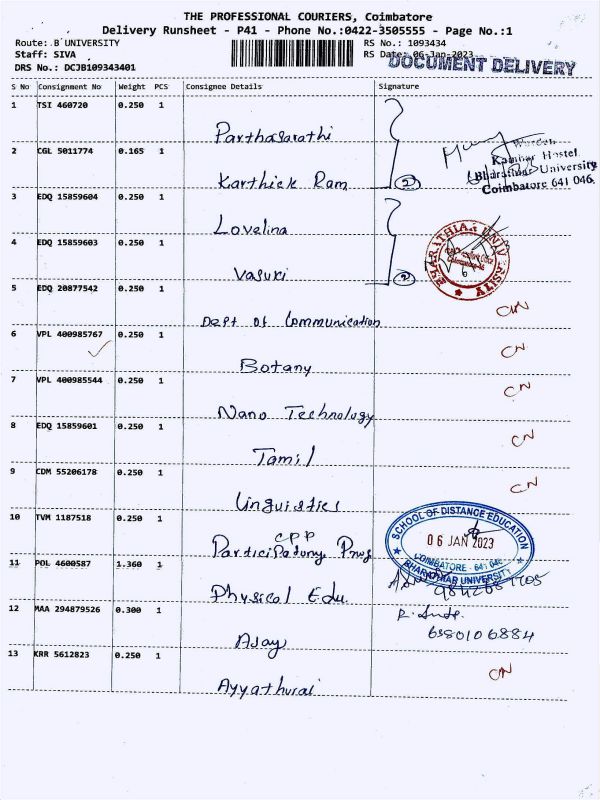 THE PROFESSIONAL COURIERS, Coimbatore
Delivery Runsheet - P41 - Phone No.:0422-3505555 - Page No.:1
Route: B UNIVERSITY
RS No.: 1093434
Staff: SIVA
RS Date: 06-Jan-2023
DOCUMENT DELIVERY
DRS No.: DCJB109343401
S No Consignment No Weight PCS Consignee Details Signature
1 TSI 460720 0.250 1
Parthasarathi
2 CGL 5011774 0.165 1
Warden
Kamban Hostel
Bharathiar University
Coimbatore 641 046.
Karthick Ram
2
3 EDQ 15859604 0.250 1
Lovelina
BHARATHIAR UNIVERSITY
4 EDQ 15859603 0.250 1
Vasuki
2
5 EDQ 20877542 0.250 1
Dept of Communication
CN
6 VPL 400985767 0.250 1
Botany
CN
7 VPL 400985544 0.250 1
Nano Technology
CN
8 EDQ 15859601 0.250 1
Tamil
CN
9 CDM 55206178 0.250 1
Linguistics
CN
10 TVM 1187518 0.250 1
CPP
SCHOOL OF DISTANCE EDUCATION
06 JAN 2023
COIMBATORE - 641 046
BHARATHIAR UNIVERSITY
11 POL 4600587 1.360 1
Physical Edu.
12 MAA 294879526 0.300 1
Ajay
6380106884
13 KRR 5612823 0.250 1
Ayyathurai
CN